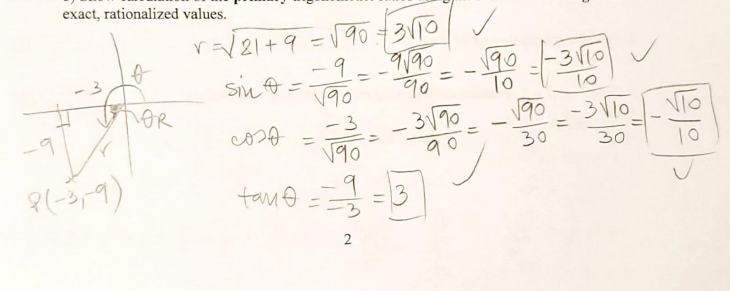 exact, rationalized values.
r = √21 + 9 = √90 = 3√10 ✓
sin θ = -9/√90 = - 9√90/90 = - √90/10 = -3√10/10 ✓
cos θ = -3/√90 = - 3√90/90 = - √90/30 = -3√10/30 = - √10/10 ✓
tan θ = -9/-3 = 3 ✓
-3
θ
θR
-9
r
P(-3,-9)
2